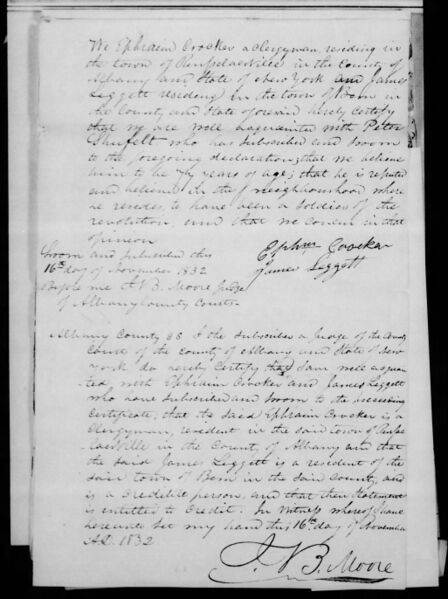 We Ephraim Crocker a Clergyman, residing in
the town of Rensselaerville in the County of
Albany and State of New York and James
Leggett residing in the town of Bern in
the County and State aforesaid hereby Certify
that we are well acquainted with Peter
Shufelt who has Subscribed and Sworn
to the foregoing declaration; that we believe
him to be 74 years of age; that he is reputed
and believed in the neighbourhood where
he resides, to have been a soldier of the
revolution, and that we concur in that
opinion
Sworn and Subscribed this
16th day of November 1832
Before me J. V. B. Moore Judge
of Albany County Courts
Ephm Crocker
James Leggett
Albany County SS I the Subscriber a Judge of the County
Court of the County of Albany and State of New
York do hereby Certify that I am well acquain
ted with Ephraim Crocker and James Leggett
who have Subscribed and Sworn to the preceeding
Certificate, that the said Ephraim Crocker is a
Clergyman, resident in the said town of Rensse
laerville in the County of Albany and that
the said James Leggett is a resident of the
said town of Bern in the said County, and
is a Credible person, and that their Statement
is entitled to Credit. In Witness whereof I have
hereunto Set my hand this 16th day of November
A.D. 1832
J. V. B. Moore